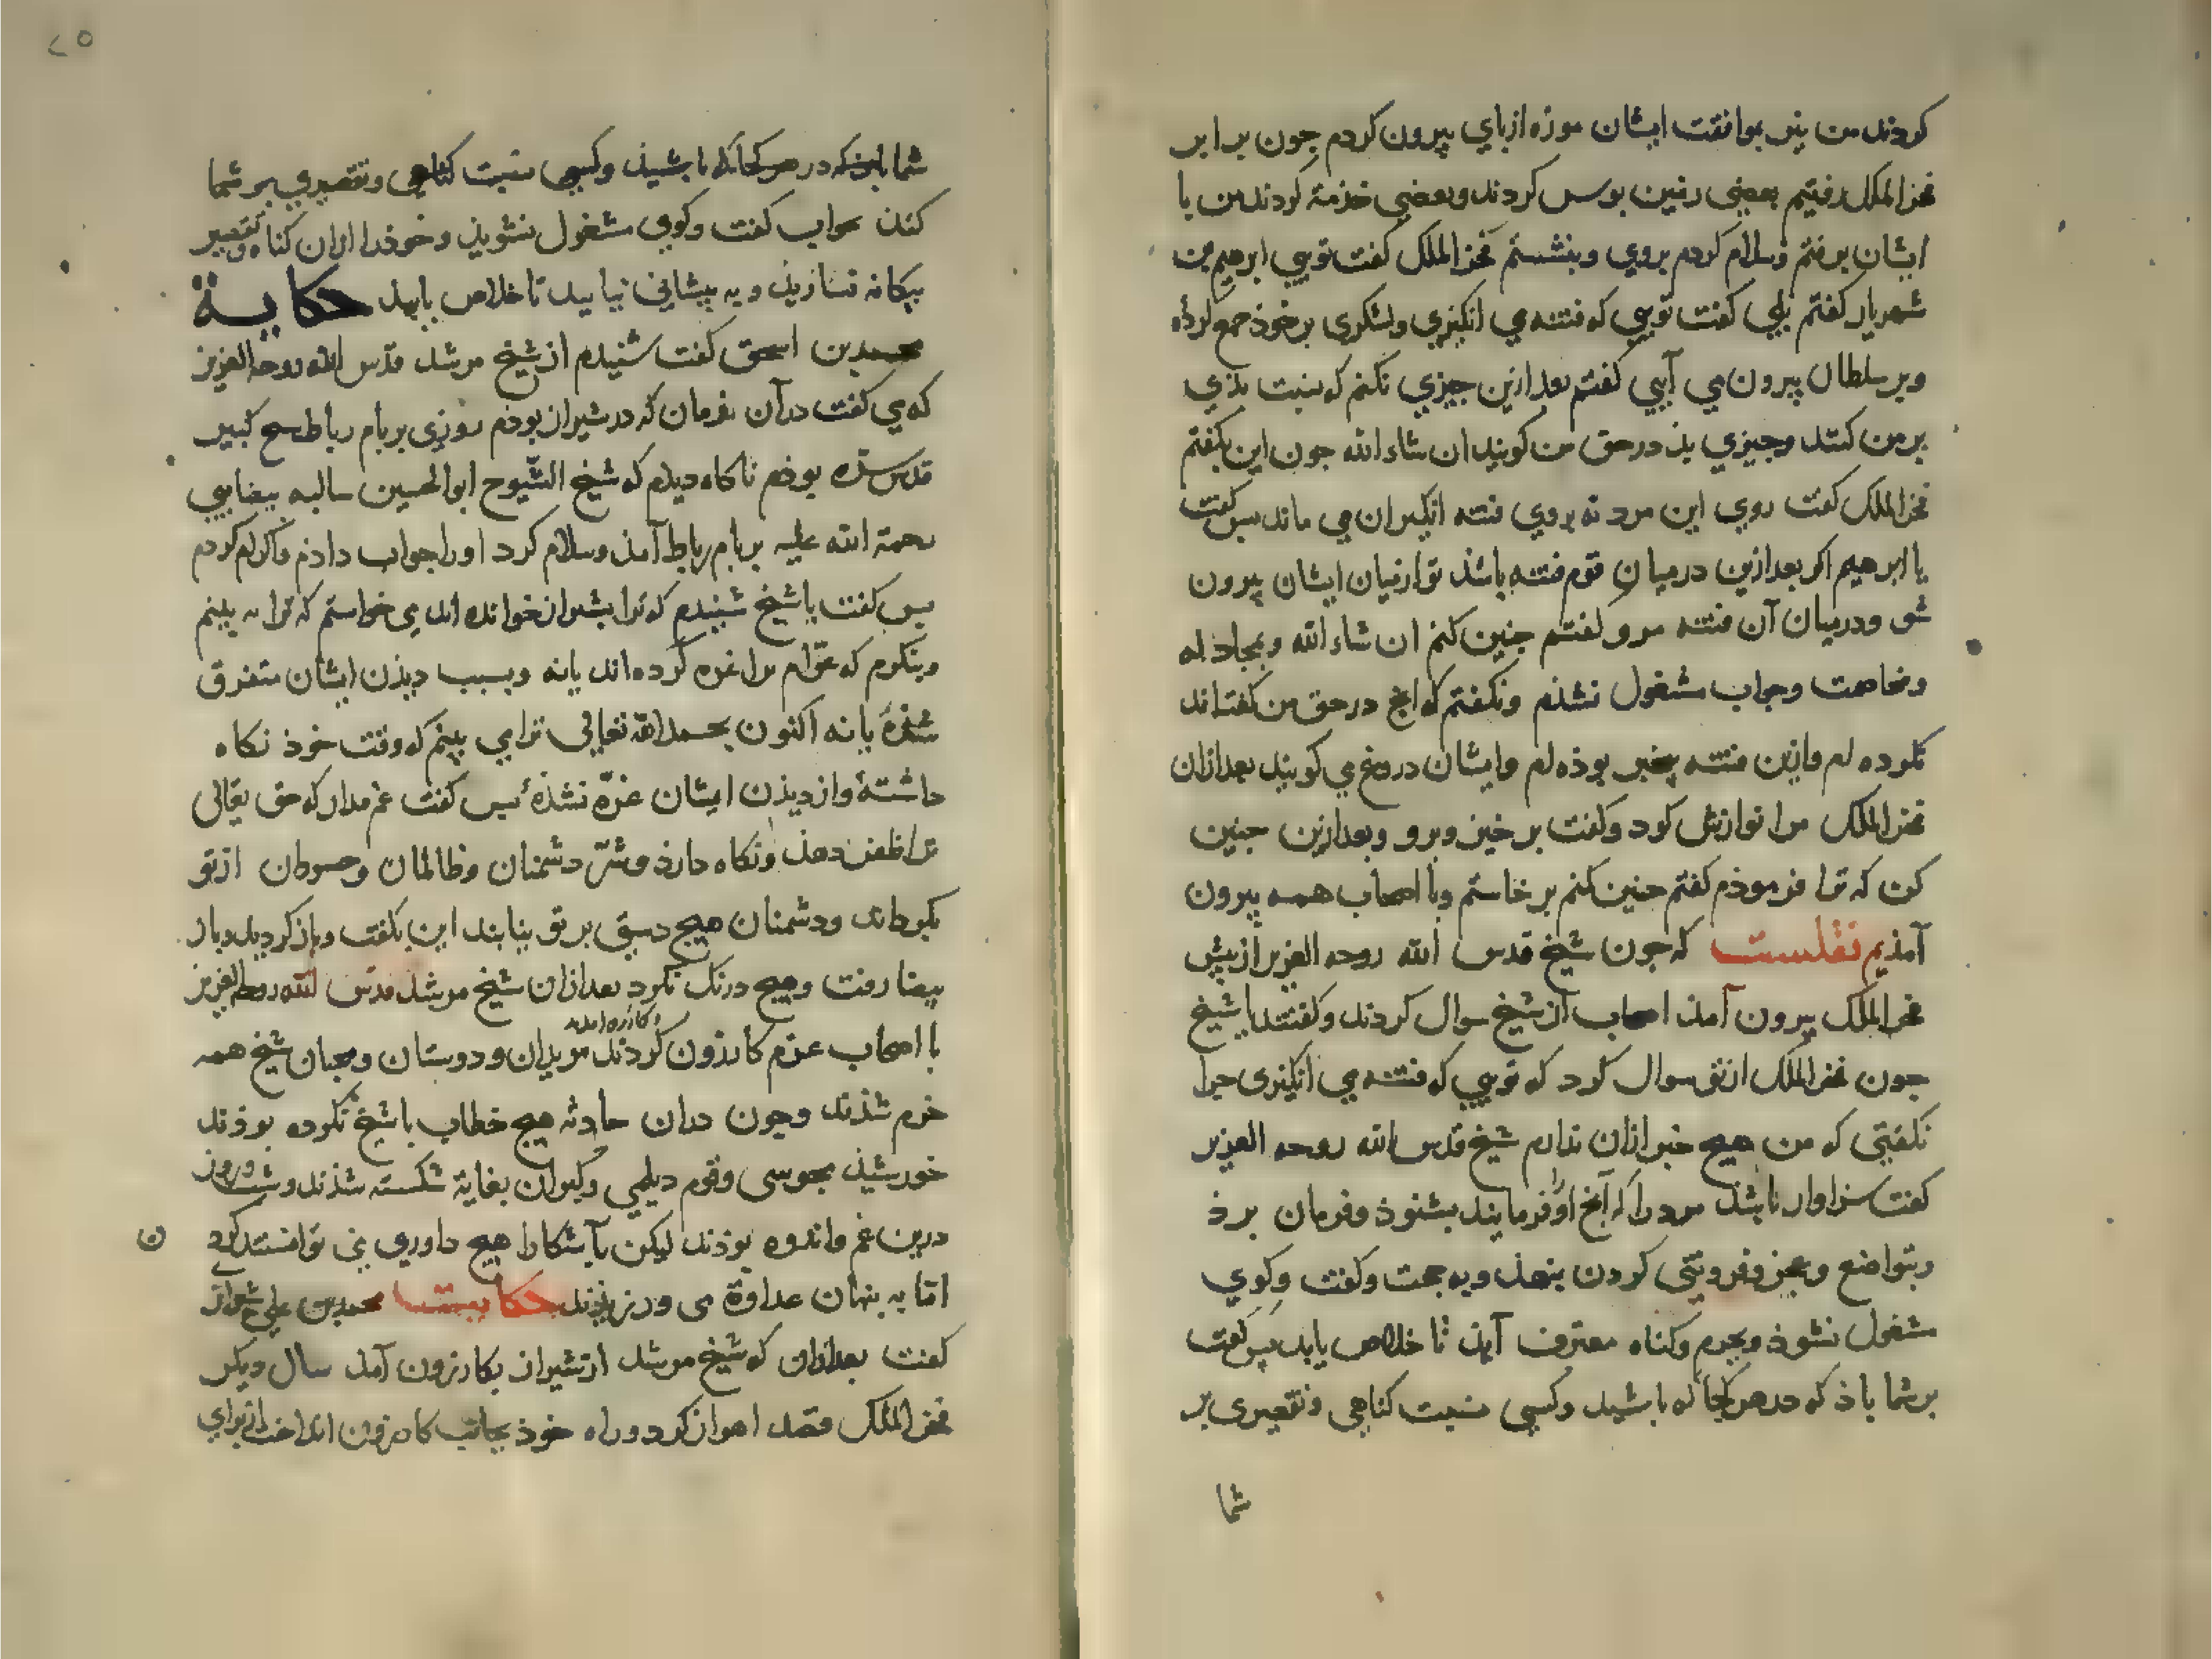 کردند من نیز بموافقت ایشان موزه از پای بیرون کردم جون برابر
فخرالملک رفتیم بعضی زمین بوس کردند و بعضی خذمة کردند من با
ایشان برفتم و سلام کردم بروی و بنشستم فخرالملک کفت تویی ابرهیم بن
شهریار کفتم بلی کفت تویی که فتنه می انکیزی و لشکری بر خوذ جمع کردهٔ
و بر سلطان بیرون می آیی کفتم بعد ازین جیزی نکنم که نسبت بذی
بر من کنند و جیزی بذ در حق من کویند ان شاء الله جون این بکفتم
فخرالملک کفت روی این مرد نه بروی فتنه انکیزان می ماند بس کفت
یا ابرهیم اکر بعد ازین در میان قوم فتنه باشذ تو از میان ایشان بیرون
شو و در میان آن فتنه مرو کفتم جنین کنم ان شاء الله و بمجادله
و مخاصمت و جواب مشغول نشذم و نکفتم که آنج در حق من کفته‌اند
نکرده ام و ازین فتنه بیخبر بوذه ام و ایشان دروغ می کویند بعد ازان
فخرالملک مرا نوازش کرد و کفت بر خیز و برو و بعد ازین جنین
کن که ترا فرموذم کفتم جنین کنم بر خاستم و با اصحاب همه بیرون
آمذیم نقلست که جون شیخ قدس الله روحه العزیز از پیش
فخرالملک بیرون آمذ اصحاب از شیخ سوال کردند و کفتند یا شیخ
جون فخرالملک از تو سوال کرد که تویی که فتنه می انکیزی جرا
نکفتی که من هیج خبر ازان ندارم شیخ قدس الله روحه العزیز
کفت سزاوار باشذ مرد را که آنج او را فرمایند بشنوذ و فرمان برذ
و بتواضع و عجز و فروتنی کردن بنهذ و به حجت و کفت و کوی
مشغول نشوذ و بجرم و کناه معترف آیذ تا خلاص یابد پس کفت
بر شما باذ که در هر کجا که باشید و کسی نسبت کناهی و تقصیری بر
شما
شما باذ که در هر کجا که باشیذ و کسی نسبت کناهی و تقصیری بر شما
کند بجواب کفت و کوی مشغول نشویذ و خوذ را ازان کناه و تقصیر
بیکانه نسازیذ و به پیشانی نیایید تا خلاص یابید حکایة
محمد بن اسحق کفت شنیدم از شیخ مرشد قدس الله روحه العزیز
که می کفت در آن فرمان که در شیراز بوذم روزی بر بام رباط شیخ کبیر
قدس سره بوذم ناکاه دیدم که شیخ الشیوخ ابوالحسین سالبه بیضایی
رحمة الله علیه بر بام رباط آمذ و سلام کرد او را جواب دادم و اکرام کردم
بس کفت یا شیخ شنیدم که ترا بشیراز خوانده اند می خواستم که ترا به بینم
و بنکرم که عوام ترا غره کرده‌اند یا نه و بسبب دیذن ایشان متفرق
شذهٔ یا نه اکنون بحمد الله تعالی ترا می بینم که وقت خوذ نکاه
داشتهٔ و از دیذن ایشان غره نشذهٔ بس کفت غم مدار که حق تعالی
ترا ظفر دهذ و نکاه دارذ و شر دشمنان و ظالمان و حسودان از تو
بکرداند و دشمنان هیج دستی بر تو نیابند این بکفت و باز کردید و باز
بیضا رفت و هیج درنک نکرد بعد ازان شیخ مرشد قدس الله روحه العزیز
با اصحاب عزم کازرون کردند مریدان و دوستان و محبان شیخ همه
خرم شذند و جون دران حادثه هیج خطاب با شیخ نکرده بوذند
خورشیذ مجوسی و قوم دیلمی و کبران بغایة شکسته شذند و شب و روز
درین غم و اندوه بوذند لیکن بآشکارا هیج داوری نمی توانستند کرد
اما به پنهان عداوة می ورزیذند حکایتست محمد بن علی
کفت بعد ازان که شیخ مرشد از شیراز بکازرون آمد سال دیکر
فخرالملک قصد اهواز کرد و راه خوذ بجانب کازرون انداخت از برای